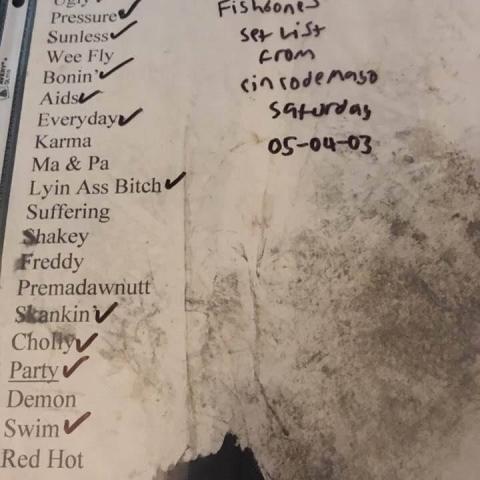 Ugly
Pressure
Sunless
Wee Fly
Bonin'
Aids
Everyday
Karma
Ma & Pa
Lyin Ass Bitch
Suffering
Shakey
Freddy
Premadawnutt
Skankin'
Cholly
Party
Demon
Swim
Red Hot
Fishbones
set List
from
cincodemaso
saturday
05-04-03